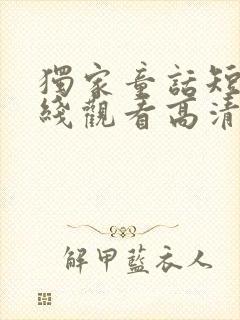 獨家童話短
綫觀看高清
解甲藍衣人